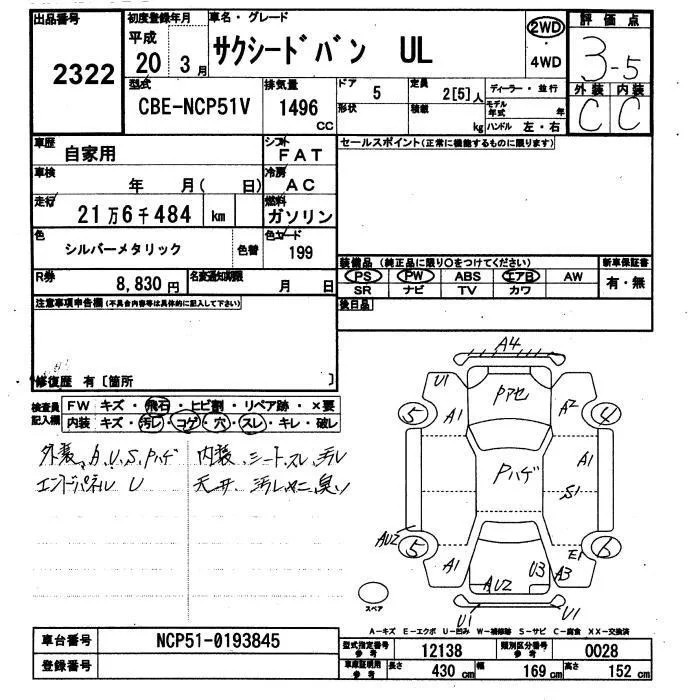 出品番号
2322
初度登録年月
平成
20 3月
車名・グレード
サクシードバン UL
2WD
・
4WD
評価点
3-5
外装 内装
C C
型式
CBE-NCP51V
排気量
1496
CC
ドア
5
形状
定員
2[5]人
積載
kg
ディーラー・並行
モデル
年式
年
ハンドル 左・右
車歴
自家用
シフト
FAT
車検
年 月( 日)
冷房
AC
走行
21万6千484 km
燃料
ガソリン
色
シルバーメタリック
色替
色コード
199
R券
8,830円
名変通知期限
月 日
セールスポイント(正常に機能するものに限ります)
装備品(純正品に限り○をつけてください)
PS PW ABS エアB AW
SR ナビ TV カワ
新車保証書
有・無
後日品
注意事項申告欄(不具合内容等は具体的に記入して下さい)
修復歴 有〔箇所 〕
検査員
記入欄
FW キズ・飛石・ヒビ割・リペア跡・×要
内装 キズ・汚レ・コゲ・穴・スレ・キレ・破レ
外装、A、U、S、Pハゲ
エンドパネル U
内装、シート、スレ、汚レ
天井、汚レ
A4
U1
Pアセ
5
A1
A2
4
Pハゲ
A1
S1
AU2
5
A1
AU2
U3
A3
E1
6
U1
U1
スペア
A−キズ E−エクボ U−凹み W−補修跡 S−サビ C−腐食 XX−交換済
車台番号
NCP51-0193845
登録番号
型式指定番号
参考
12138
類別区分番号
参考
0028
車庫証明用
参考
長さ
430 cm
幅
169 cm
高さ
152 cm